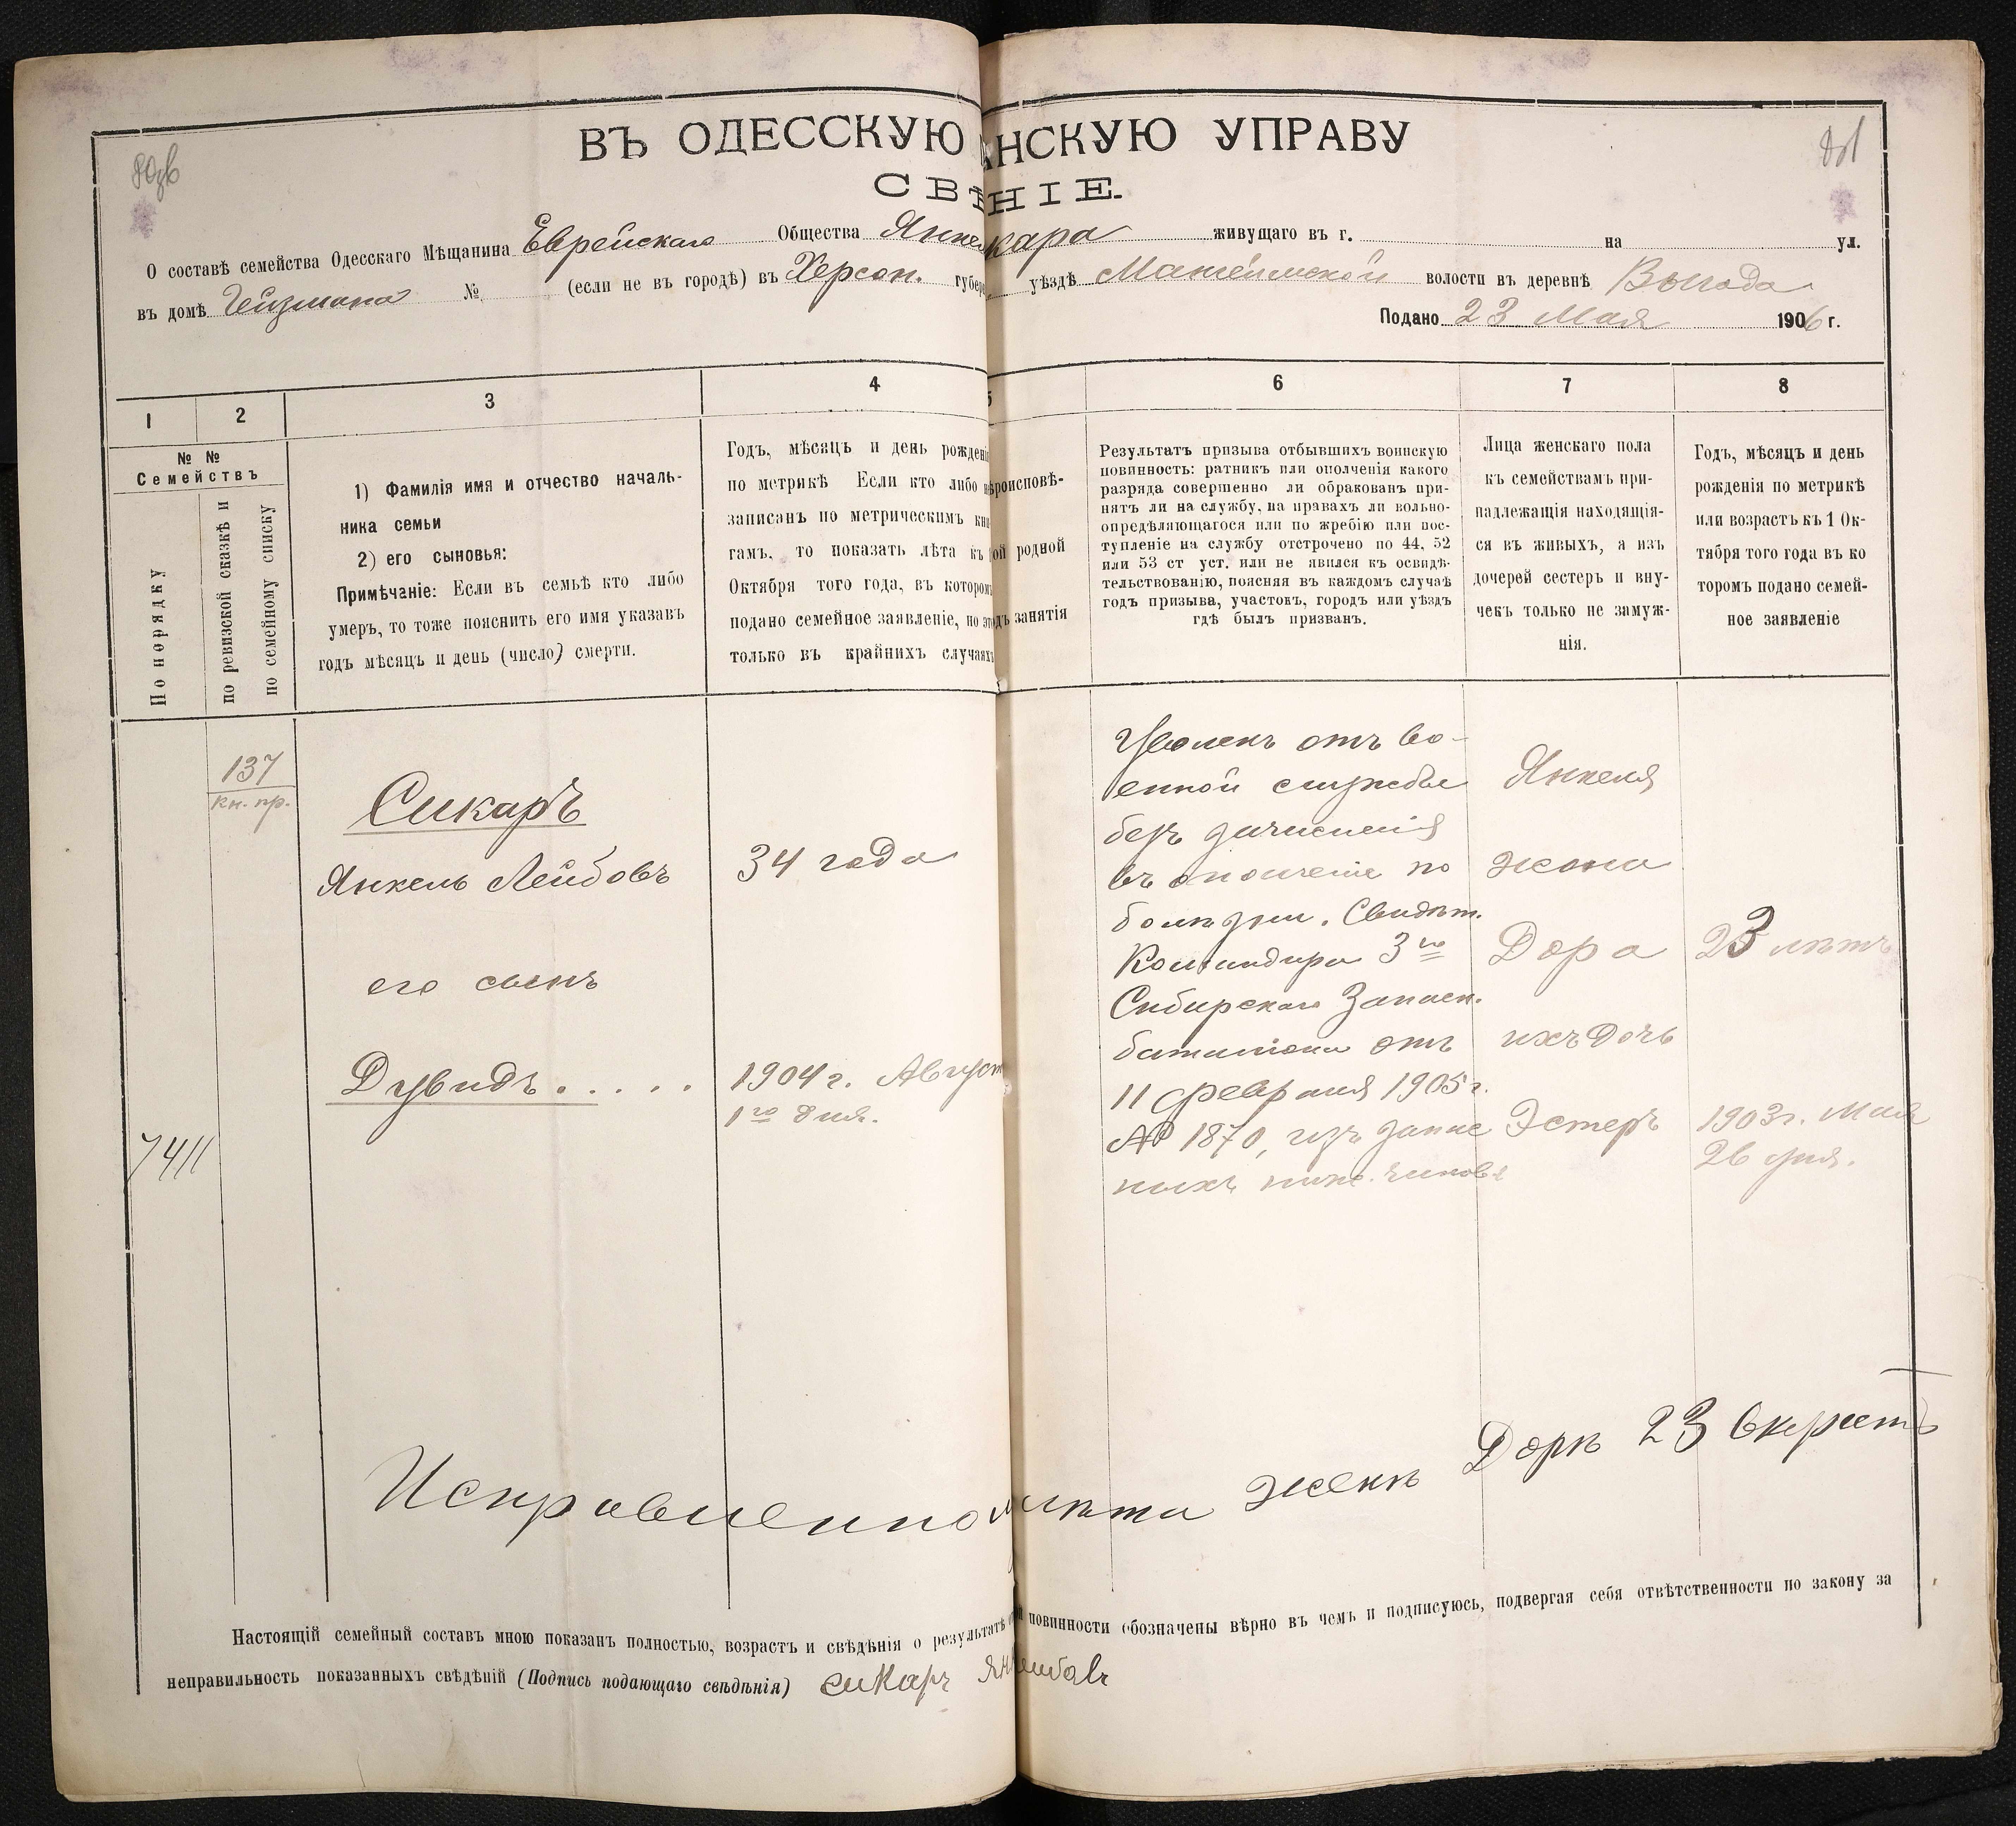 ВЪ ОДЕССКУЮ АНСКУЮ УПРАВУ
СВѢНІЕ.
О составѣ семейства Одесскаго Мѣщанина Еврейскаго Общества Янкел кара живущаго въ г. на ул.
въ домѣ Гейзмана № (если не въ городѣ) въ Херсон. губер уѣздѣ волости въ деревнѣ Выгода
Подано 23 Мая 1906 г.
1 2 3 4 5 6 7 8
№ №
Семействъ
По порядку
по ревизской сказкѣ и
по семейному списку
1) Фамилія имя и отчество началь-
ника семьи
2) его сыновья:
Примѣчаніе: Если въ семьѣ кто либо
умеръ, то тоже пояснить его имя указавъ
годъ мѣсяцъ и день (число) смерти.
Годъ, мѣсяцъ и день рожденi
по метрикѣ Если кто либо н
записанъ по метрическимъ кни
гамъ, то показать лѣта къ
Октября того года, въ котором
подано семейное заявленіе, но эт
только въ крайнихъ случаяхъ
ѣроисповѣ-
ой родной
дъ занятія
Результатъ призыва отбывшихъ воинскую
повинность: ратникъ или ополченія какого
разряда совершенно ли обракованъ при-
нятъ ли на службу, на правахъ ли вольно-
опредѣляющагося или по жребію или пос-
тупленіе на службу отстрочено по 44, 52
или 53 ст уст. или не явился къ освидѣ-
тельствованію, поясняя въ каждомъ случаѣ
годъ призыва, участокъ, городъ или уѣздъ
гдѣ былъ призванъ.
Лица женскаго пола
къ семействамъ при-
надлежащія находящія-
ся въ живыхъ, а изъ
дочерей сестеръ и вну-
чекъ только не замуж-
нія.
Годъ, мѣсяцъ и день
рожденія по метрикѣ
или возрастъ къ 1 Ок-
тября того года въ ко
торомъ подано семей-
ное заявленіе
137
кн. пр.
7411
Сикаръ
Янкель Лейбовъ
его сынъ
Дувидъ . . . . .
34 года
1904 г. Август
1го дня.
Уволенъ отъ во-
енной службы
безъ зачисленія
въ ополченіе по
болѣзни. Свидѣт.
Командира 3го
Сибирскаго Запасн.
баталіона отъ
11 февраля 1905 г.
№ 1870, изъ запас
ныхъ ниж. чиновъ
Янкеля
жена
Дора
ихъ дочь
Эстеръ
23 лѣтъ
1903 г. Мая
26 дня.
Исправленно лѣта женѣ Дорѣ 23
Настоящій семейный составъ мною показанъ полностью, возрастъ и свѣдѣнія о результатѣ повинности обозначены вѣрно въ чемъ и подписуюсь, подвергая себя отвѣтственности по закону за
неправильность показанныхъ свѣдѣній (Подпись подающаго свѣдѣнія) сикаръ Ян ейбовъ